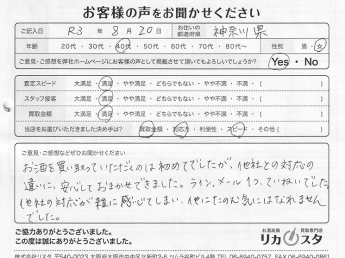 お客様の声をお聞かせください
ご記入日 R3 年 8 月 20 日 お住いの都道府県 神奈川県
年齢 20代・30代・40代・50代・60代・70代・80代〜 性別 男・女
ご意見・ご感想を弊社ホームページにお客様の声として掲載させて頂いてもよろしいでしょうか? Yes・No
査定スピード 大満足・満足・やや満足・どちらでもない・やや不満・不満・( )
スタッフ接客 大満足・満足・やや満足・どちらでもない・やや不満・不満・( )
買取金額 大満足・満足・やや満足・どちらでもない・やや不満・不満・( )
当店をお選びいただきました決め手は? 買取金額・対応力・利便性・スピード・その他( )
ご意見・ご感想などぜひお聞かせください
お酒を買い取っていただくのは初めてでしたが、他社との対応の
違いに、安心しておまかせできました。ライン、メール1つ、ていねいでした。
他社の対応が雑に感じてしまい、他にたのむ気にはなれません
でした。
ご協力ありがとうございました。
この度は誠にありがとうございました。
お酒高価 買取専門店
リカスタ
株式会社リスタ 〒540-0023